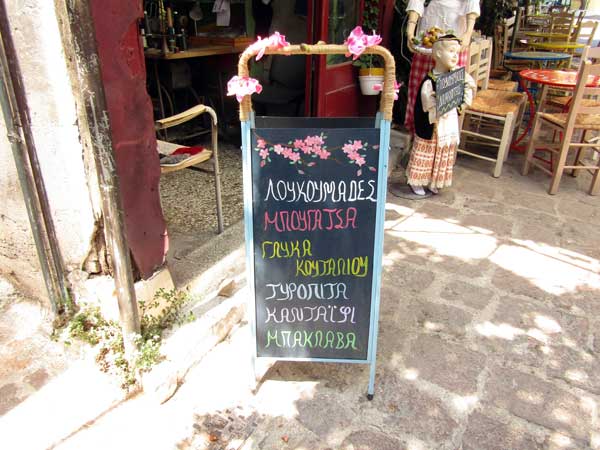 ΛΟΥΚΟΥΜΑΔΕΣ
ΜΠΟΥΓΑΤΣΑ
ΓΛΥΚΑ
ΚΟΥΤΑΛΙΟΥ
ΤΥΡΟΠΙΤΑ
ΚΑΝΤΑΪΦΙ
ΜΠΑΚΛΑΒΑ